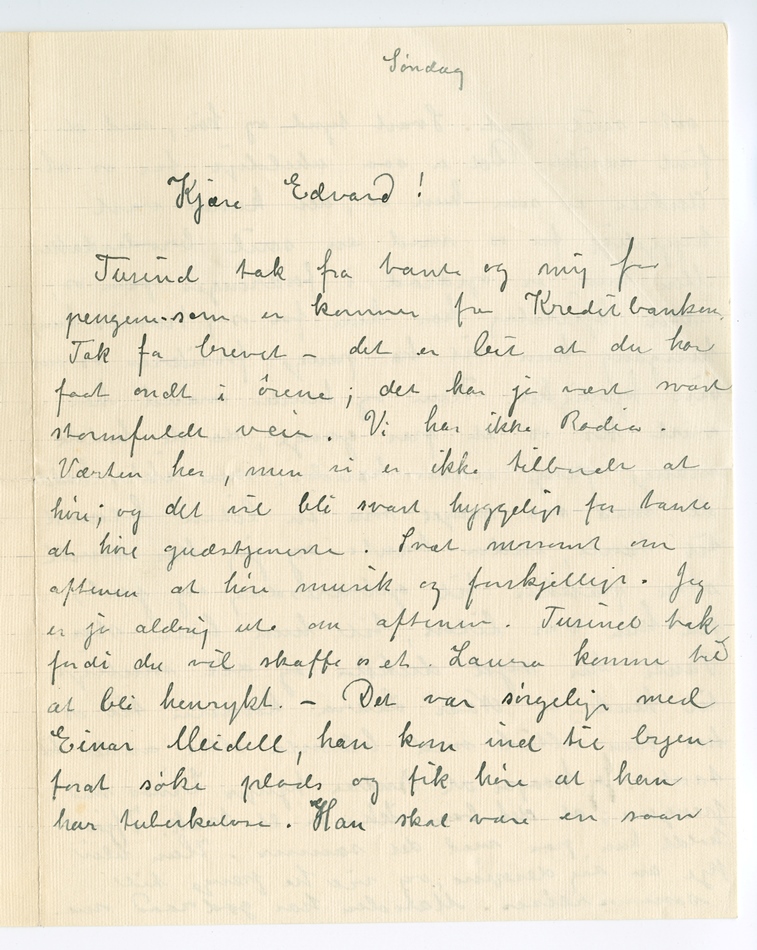 Søndag
Kjære Edvard!
Tusind tak fra tante og mig for
pengene som er kommet fra Kreditbanken.
Tak for brevet – det er leit at du har
faat ondt i ørene; det har jo vært svært
stormfuldt veir. Vi har ikke Radio.
Værten har, men vi er ikke tilbudt at
høre; og det vil bli svært hyggeligt for tante
at høre gudstjeneste. Svært morsomt om
aftenen at høre musik og forskjelligt. Jeg
er jo aldrig ute om aftenen. Tusind tak
fordi du vil skaffe os et. Laura komme til
at bli henrykt. – Det var sørgeligt med
Einar Meidell, han kom ind til byen
forat søke plads og fik høre at han
har tuberkulose. Han skal være en saan